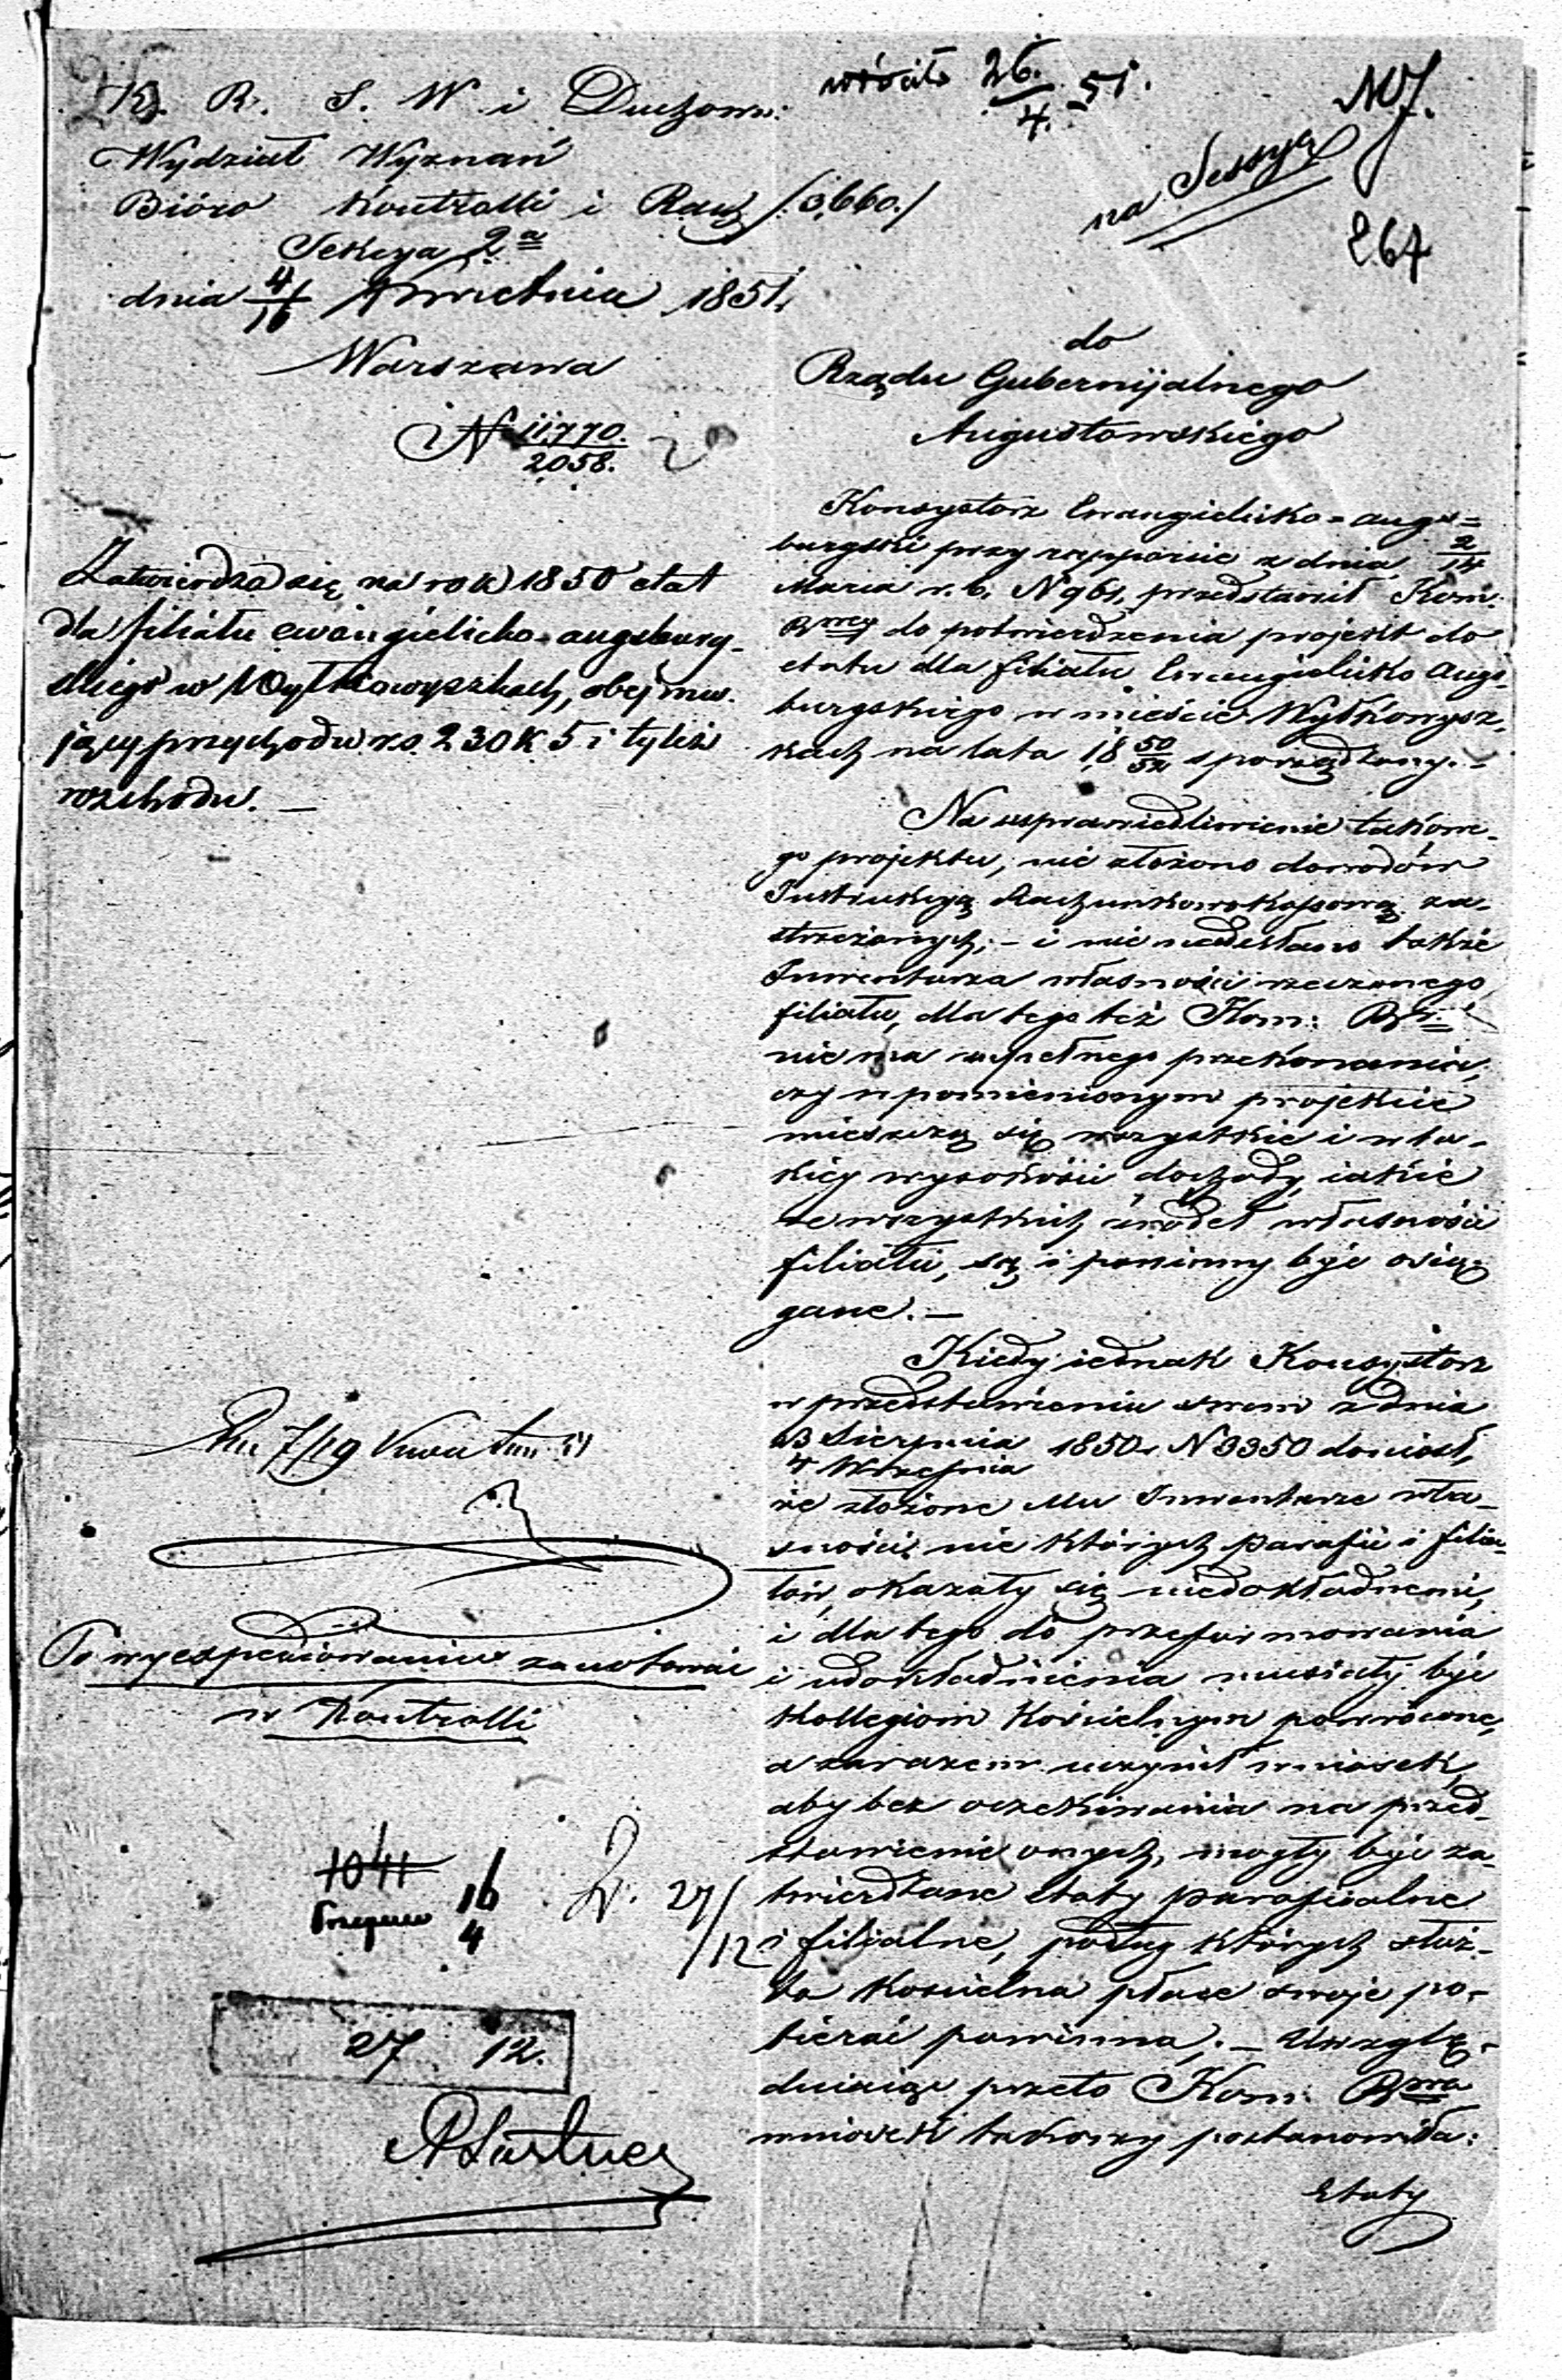 K. R. S. W i Duchow:
Wydział Wyznań
Bióro Kontrolli i Rach /:3,660:/
Sekcya 2ª
dnia 4/16 Kwietnia 1851.
Warszawa
N 11,770./2058.
wróciło 26./4. 51.
na Sessyą
267
do
Rządu Gubernijalnego
Augustowskiego
Zatwierdza się na rok 1850 etat
dla filiału ewangielicko-augsburg-
skiego w Wyłkowyszkach, obejmu-
jący przychodu rs. 230 k 5 i tyleż
rozchodu. —
Konsystorz Ewangielicko=augs=
burgski przy rapporcie z dnia 2/14
Marca r. b. N 961, przedstawił Kom:
Rwey do potwierdzenia projekt do
etatu dla filiału Ewangielicko Augs-
burgskiego w mieście Wyłkowysz-
kach na lata 18 50/52 sporządzony. -
Na usprawiedliwienie takowe-
go projektu, nie złożono dowodów
Instrukcyą Rachunkowo Kassową za-
strzeżonych; - i nie nadesłano także
Inwentarza własności rzeczonego
filiału, dla tego też Kom: R
nie ma zupełnego przekonania,
czy w pomienionym projekcie
mieszczą się wszystkie i w ta-
kiey wysokości dochody, iakie
ze wszystkich źródeł własności
filiału, są i powinny być osią-
gane. —
Kiedy iednak Konsystorz
w przedstawieniu swem z dnia
23 Sierpnia/4 Września 1850 r. N 3350 doniósł,
że złożone Mu Inwentarze wła-
sności, nie których parafii i filia-
łów, okazały się niedokładnemi,
i dla tego do przeformowania
i udokładnienia musiały być
Kollegiom Kościelnym powrócone,
a zarazem uczynił wniosek,
aby bez oczekiwania na przed-
stawienie onych, mogły być za-
twierdzane etaty parafialne
i filialne, podług których służ-
ba Kościelna płace swoje po-
bierać powinna; - Uwzglę-
dniaiąc przeto Kom: Rwa
wniosek takowy postanowiła:
Etaty
Po wyexpediowaniu zanotować
w Kontrolli
1041
16/4
27/12
27 12.